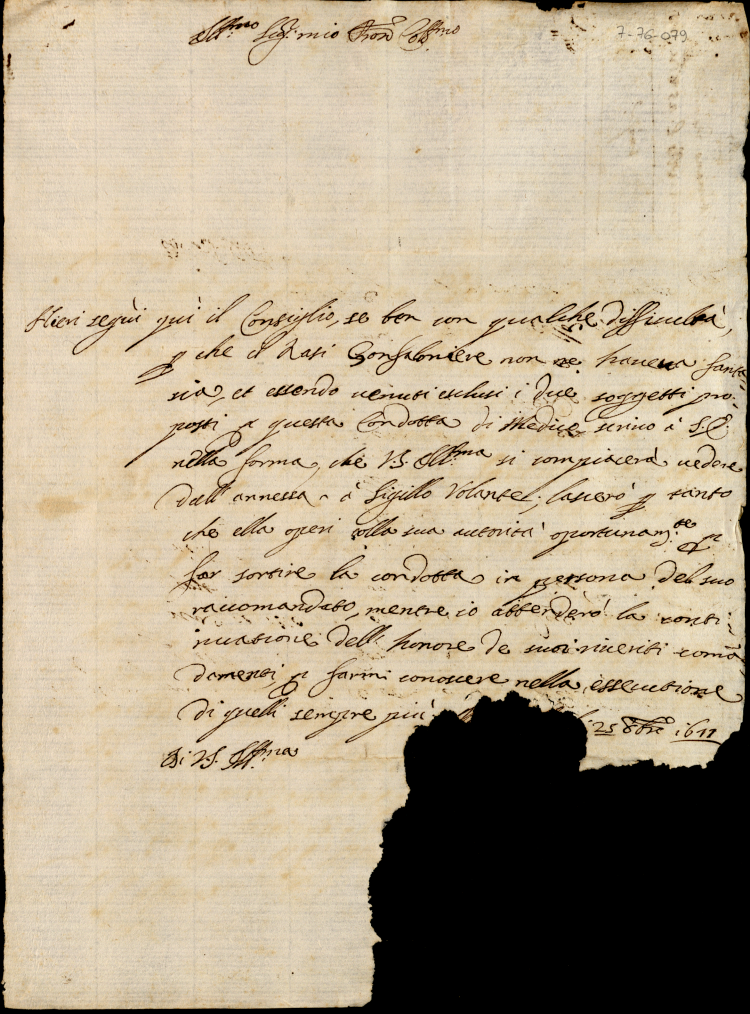 Ill.mo Sig.r mio Pron Col.mo
7-76-079
Hieri seguì quì il Consiglio, se ben con qualche difficultà,
p che il Rasi Gonfaloniere non ne haveva fanta-
sia, et essendo venuti esclusi i due soggetti pro-
posti a questa Condotta di Medico scrivo à S.E.
nella forma, che V.S. Ill.ma si compiacerà vedere
dall'annessa à Sigillo Volante; lascerò p tanto
che ella operi colla sua autorità oportunam.te p
far sortire la condotta in persona del suo
raccomandato, mentre io attenderò la conti-
nuatione dell'honore de suoi riveriti coman
damenti, p farmi conoscere nella essecutione
di quelli sempre più
25 8bre
Di V.S. Ill.ma